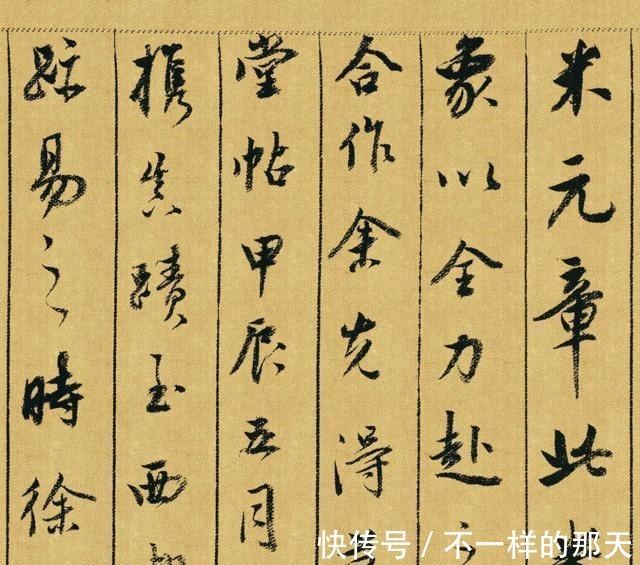 米元章此
象以全力赴之
合作余先得
堂帖甲辰五月
携真蹟至西
跡易之時徐
快传号 / 不一样的那天